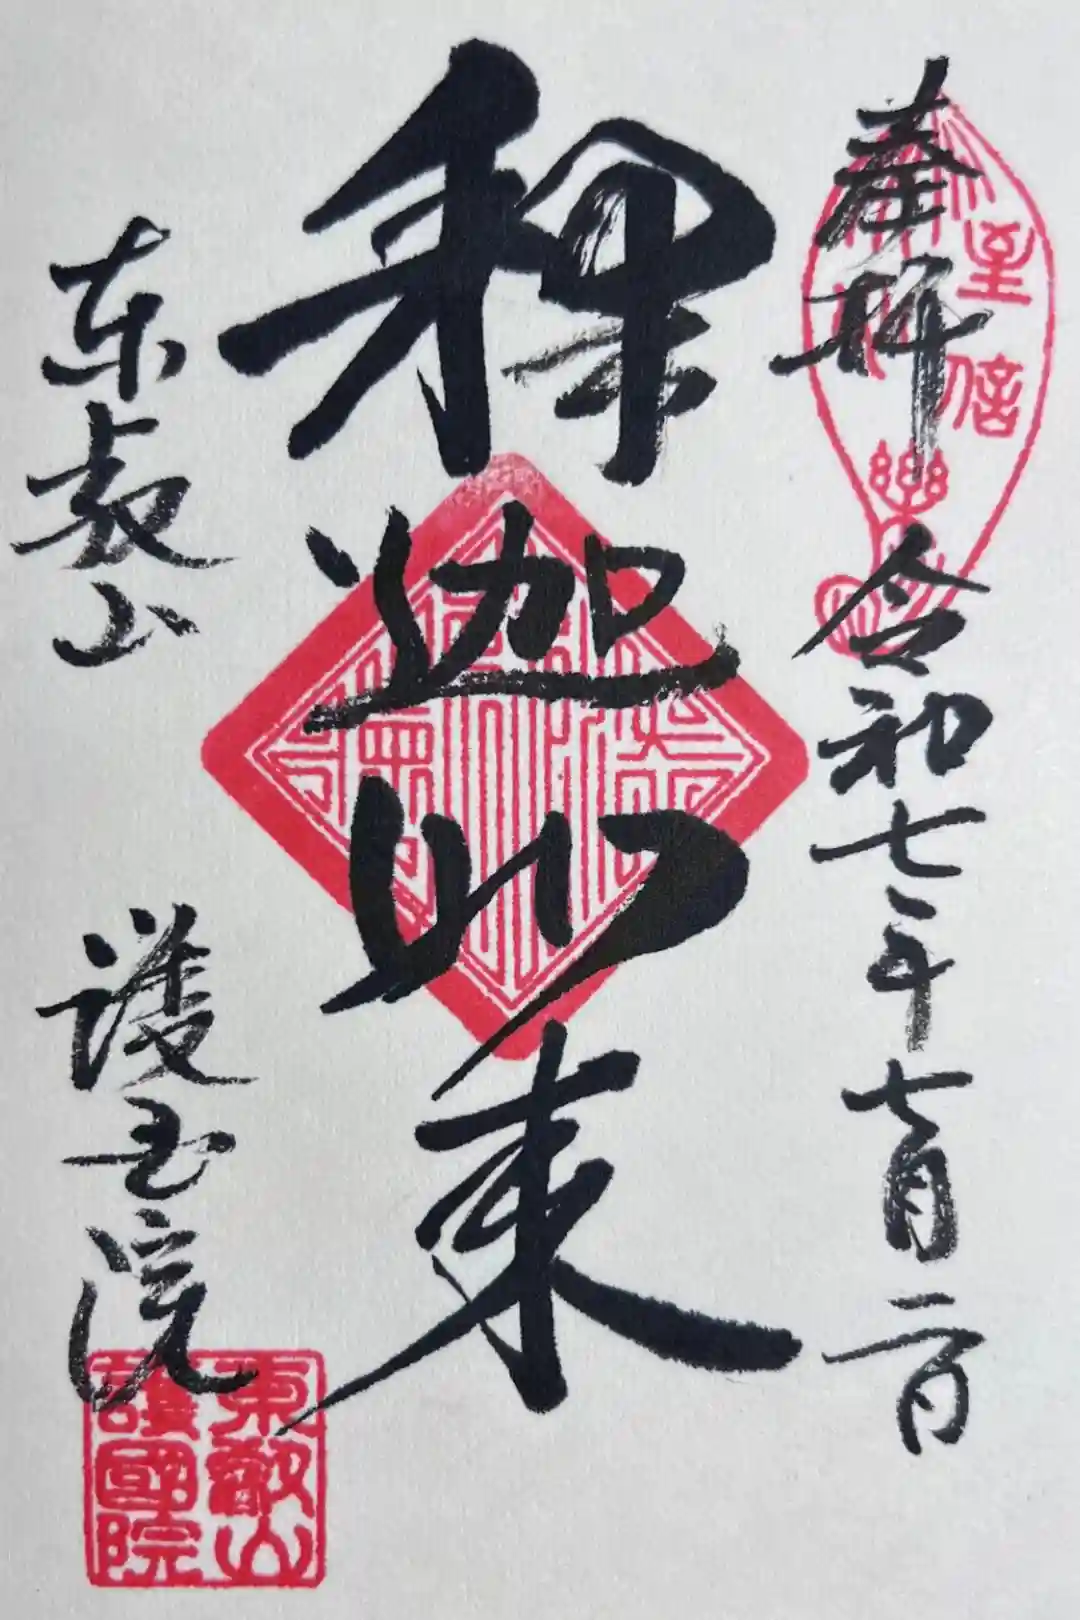 奉拝
令和七年七月二日
釈迦如来
東叡山
護国院
東叡山
護國院
至信
樂